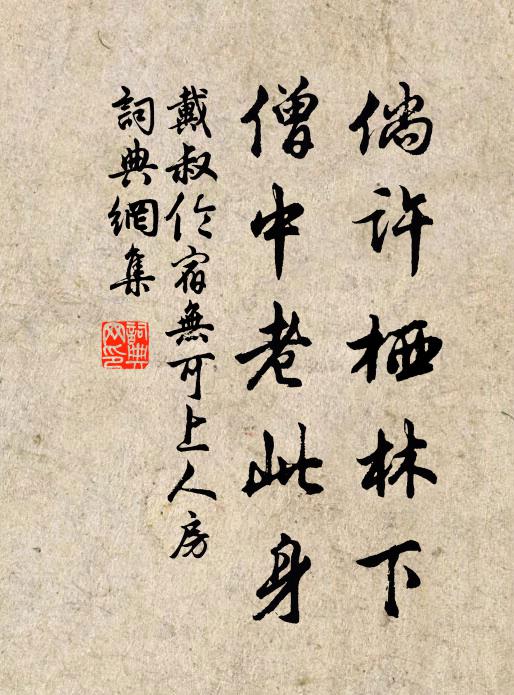 倘許栖林下
僧中老此身
戴叔伦宿無可上人房
詞典網集
詞典网印